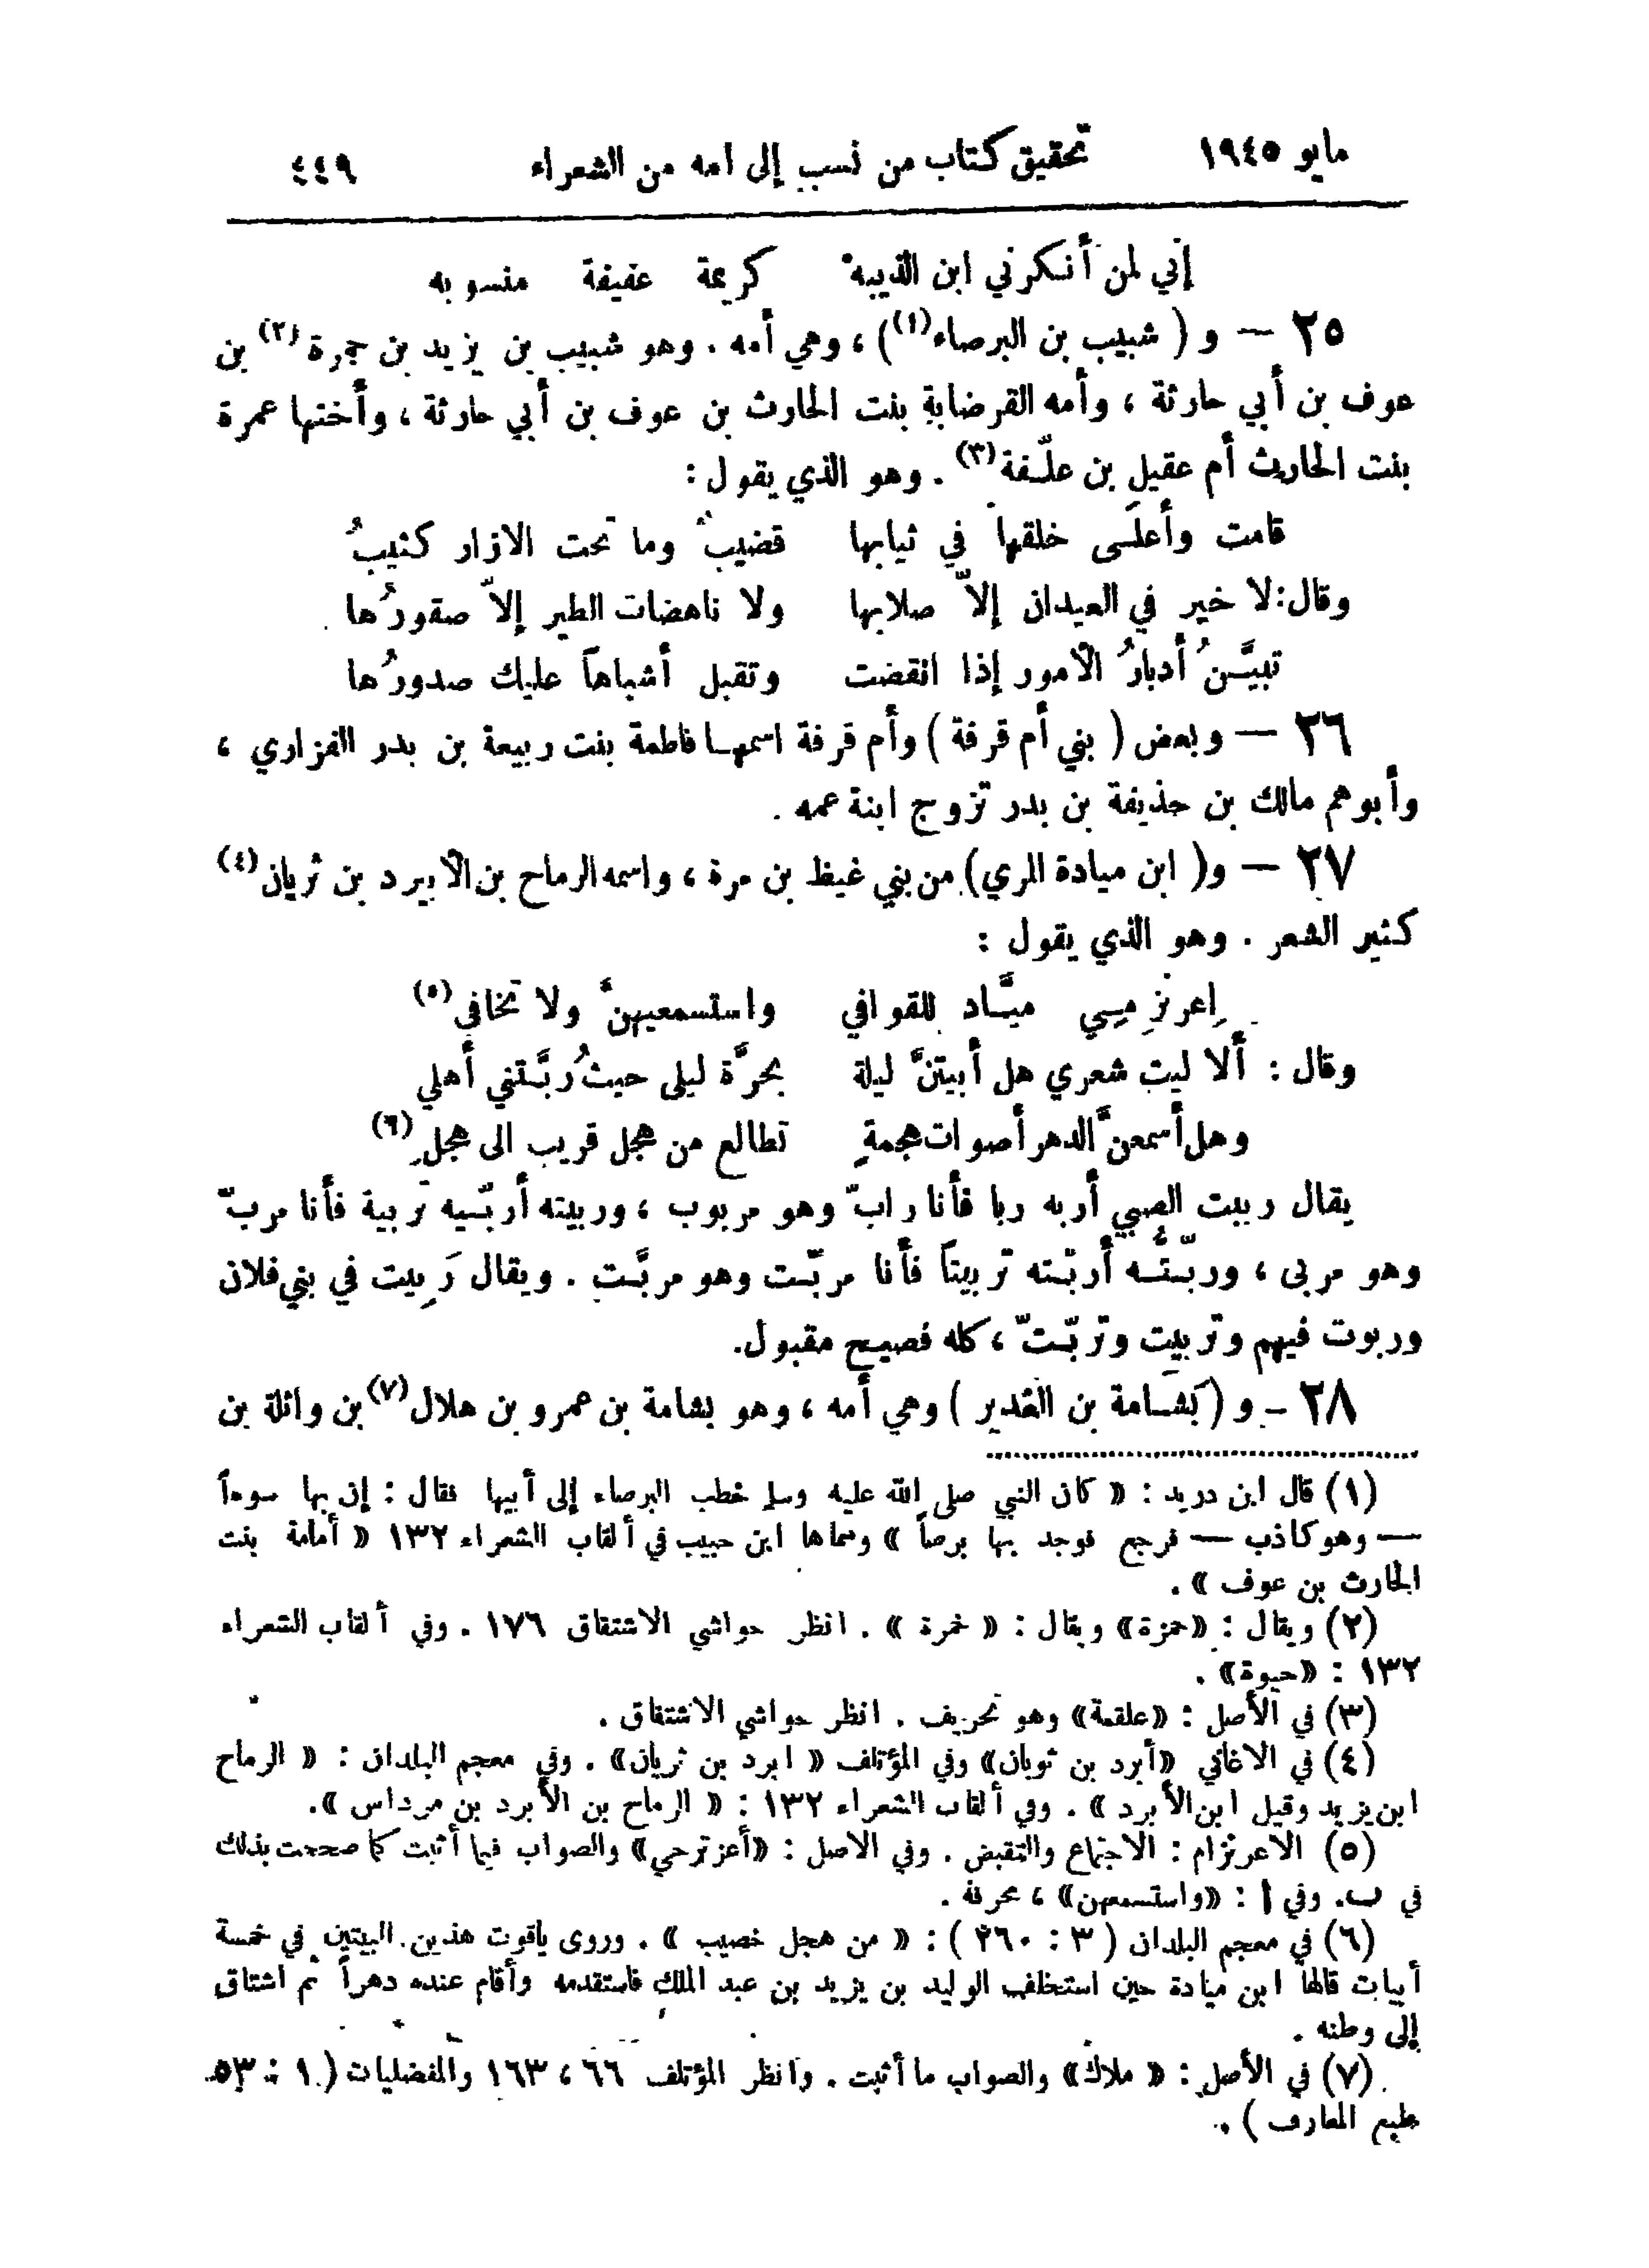 مايو ١٩٤٥ تحقيق كتاب من نسب إلى أمه من الشعراء ٤٤٩
إني لمن أنكرني ابن الذيبه كريمة عفيفة منسوبه
٢٥ — و ( شبيب بن البرصاء(١) ) ، وهي أمه . وهو شبيب بن يزيد بن جمرة (٢) بن
عوف بن أبي حارثة ، وأمه القرضابة بنت الحارث بن عوف بن أبي حارثة ، وأختها عمرة
بنت الحارث أم عقيل بن علّفة (٣) . وهو الذي يقول :
قامت وأعلَى خلقها في ثيابها قضيبٌ وما تحت الازار كثيبُ
وقال : لا خير في العيدان إلاّ صلابها ولا ناهضات الطير إلاّ صقورُها
تبيَّنُ أدبارُ الأمور إذا انقضت وتقبل أشباهاً عليك صدورُها
٢٦ — وبعض ( بني أم قرفة ) وأم قرفة اسمها فاطمة بنت ربيعة بن بدر الفزاري ،
وأبوهم مالك بن حذيفة بن بدر تزوج ابنة عمه .
٢٧ — و( ابن ميادة المري ) من بني غيظ بن مرة ، واسمه الرماح بن الأبيرد بن ثريان (٤)
كثير الشعر . وهو الذي يقول :
اِعرنزِمِي ميَّاد للقوافي واستسمعيهنَّ ولا تخافي (٥)
وقال : ألا ليت شعري هل أبيتنَّ ليلة بحرَّة ليلى حيثُ ربَّتني أهلي
وهل أسمعنَّ الدهر أصوات هجمةٍ تطالع من هجل قريب الى هجلِ (٦)
يقال رببت الصبي أربه ربا فأنا رابّ وهو مربوب ، وربيته أربّيه تربية فأنا مربّ
وهو مربى ، وربّتُّه أربّته تربيتاً فأنا مربّت وهو مربَّت . ويقال رَبِيت في بني فلان
وربوت فيهم وتربيت وتربّتّ ، كله فصيح مقبول .
٢٨ - و ( بَشامة بن الغدير ) وهي أمه ، وهو بشامة بن عمرو بن هلال (٧) بن واثلة بن
(١) قال ابن دريد : « كان النبي صلى الله عليه وسلم خطب البرصاء إلى أبيها فقال : إن بها سوءاً
— وهو كاذب — فرجع فوجد بها برصاً » وسماها ابن حبيب في ألقاب الشعراء ١٣٢ « أمامة بنت
الحارث بن عوف » .
(٢) ويقال : «حمزة» ويقال : « خمرة » . انظر حواشي الاشتقاق ١٧٦ . وفي ألقاب الشعراء
١٣٢ : «حيوة» .
(٣) في الأصل : «علقمة» وهو تحريف . انظر حواشي الاشتقاق .
(٤) في الاغاني «أبرد بن ثوبان» وفي المؤتلف « ابرد بن ثريان» . وفي معجم البلدان : « الرماح
ابن يزيد وقيل ابن الأبرد » . وفي ألقاب الشعراء ١٣٢ : « الرماح بن الأبرد بن مرداس » .
(٥) الاعرنزام : الاجتماع والتقبض . وفي الاصل : «أعز ترحي» والصواب فيما أثبت كما صححت بذلك
في ب. وفي أ : «واستسمعهن» ، محرفة .
(٦) في معجم البلدان ( ٣ : ٢٦٠ ) : « من هجل خصيب » . وروى ياقوت هذين البيتين في خمسة
أبيات قالها ابن ميادة حين استخلف الوليد بن يزيد بن عبد الملك فاستقدمه وأقام عنده دهراً ثم اشتاق
إلى وطنه .
(٧) في الأصل : « ملاك» والصواب ما أثبت . وانظر المؤتلف ٦٦ ، ١٦٣ والمفضليات ( ١ : ٥٣
طبع المعارف ) .